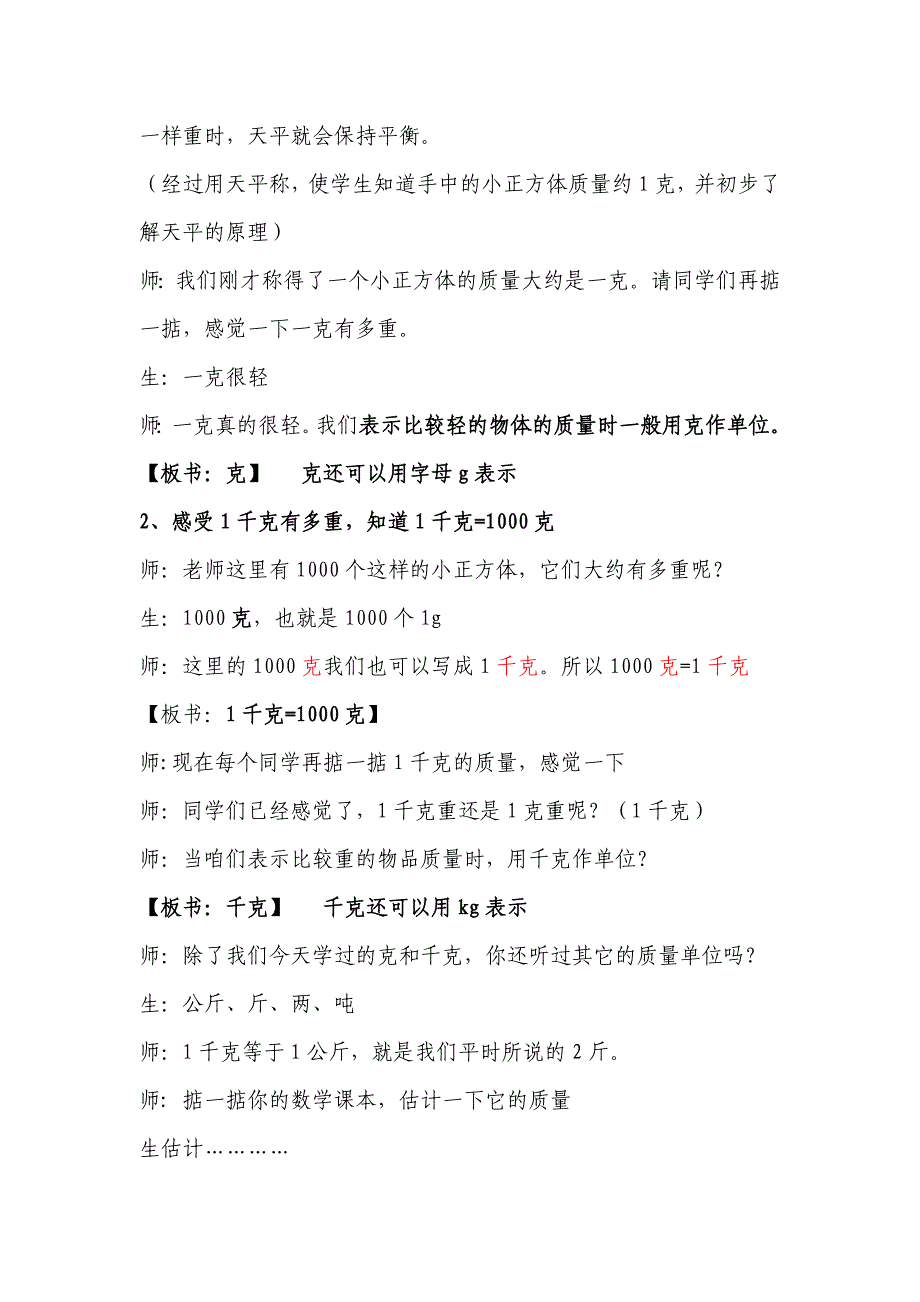 一样重时，天平就会保持平衡。
（经过用天平称，使学生知道手中的小正方体质量约 1 克，并初步了
解天平的原理）
师：我们刚才称得了一个小正方体的质量大约是一克。请同学们再掂
一掂，感觉一下一克有多重。
生：一克很轻
师：一克真的很轻。我们表示比较轻的物体的质量时一般用克作单位。
【板书：克】　　克还可以用字母 g 表示
2、感受 1 千克有多重，知道 1 千克=1000 克
师：老师这里有 1000 个这样的小正方体，它们大约有多重呢？
生：1000 克，也就是 1000 个 1g
师：这里的 1000 克我们也可以写成 1 千克。所以 1000 克=1 千克
【板书：1 千克=1000 克】
师：现在每个同学再掂一掂 1 千克的质量，感觉一下
师：同学们已经感觉了，1 千克重还是 1 克重呢？（1 千克）
师：当咱们表示比较重的物品质量时，用千克作单位？
【板书：千克】　　千克还可以用 kg 表示
师：除了我们今天学过的克和千克，你还听过其它的质量单位吗？
生：公斤、斤、两、吨
师：1 千克等于 1 公斤，就是我们平时所说的 2 斤。
师：掂一掂你的数学课本，估计一下它的质量
生估计…………